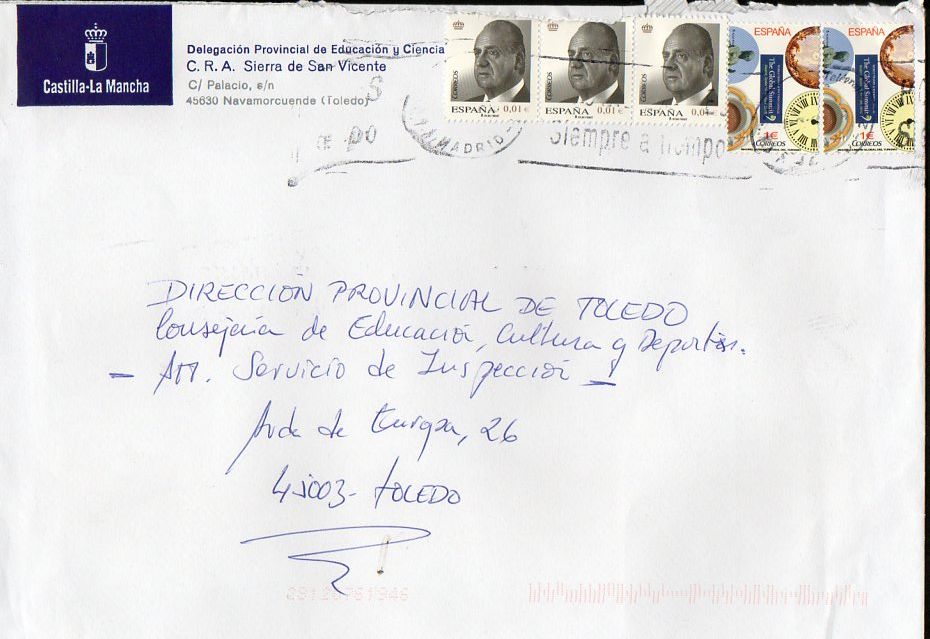 Castilla-La Mancha
Delegación Provincial de Educación y Ciencia
C. R. A. Sierra de San Vicente
C/ Palacio, s/n
45630 Navamorcuende (Toledo)
CORREOS
ESPAÑA 0,01 €
CORREOS
ESPAÑA 0,01 €
CORREOS
ESPAÑA 0,01
ESPAÑA
The Global Summit
1€
CORREOS
ESPAÑA
The Global Summit
1€
CORREOS
MADRID
Siempre a tiempo
DIRECCIÓN PROVINCIAL DE TOLEDO
Consejería de Educación, Cultura y Deportes.
- Att. Servicio de Inspección -
Avda de Europa, 26
45003 - TOLEDO